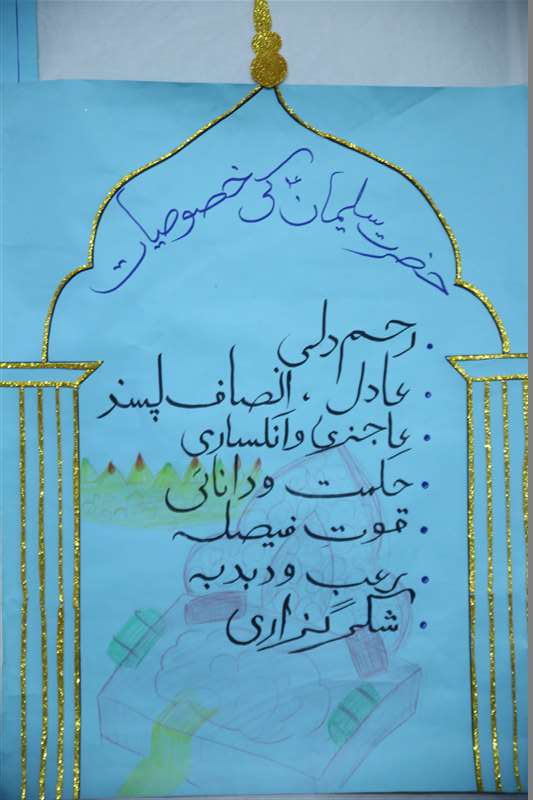 حضرت سلیمانؑ کی خصوصیات
رحم دلی
عادل ، انصاف پسند
عاجزی وانکساری
حکمت ودانائی
قوت فیصلہ
رعب ودبدبہ
شکر گزاری